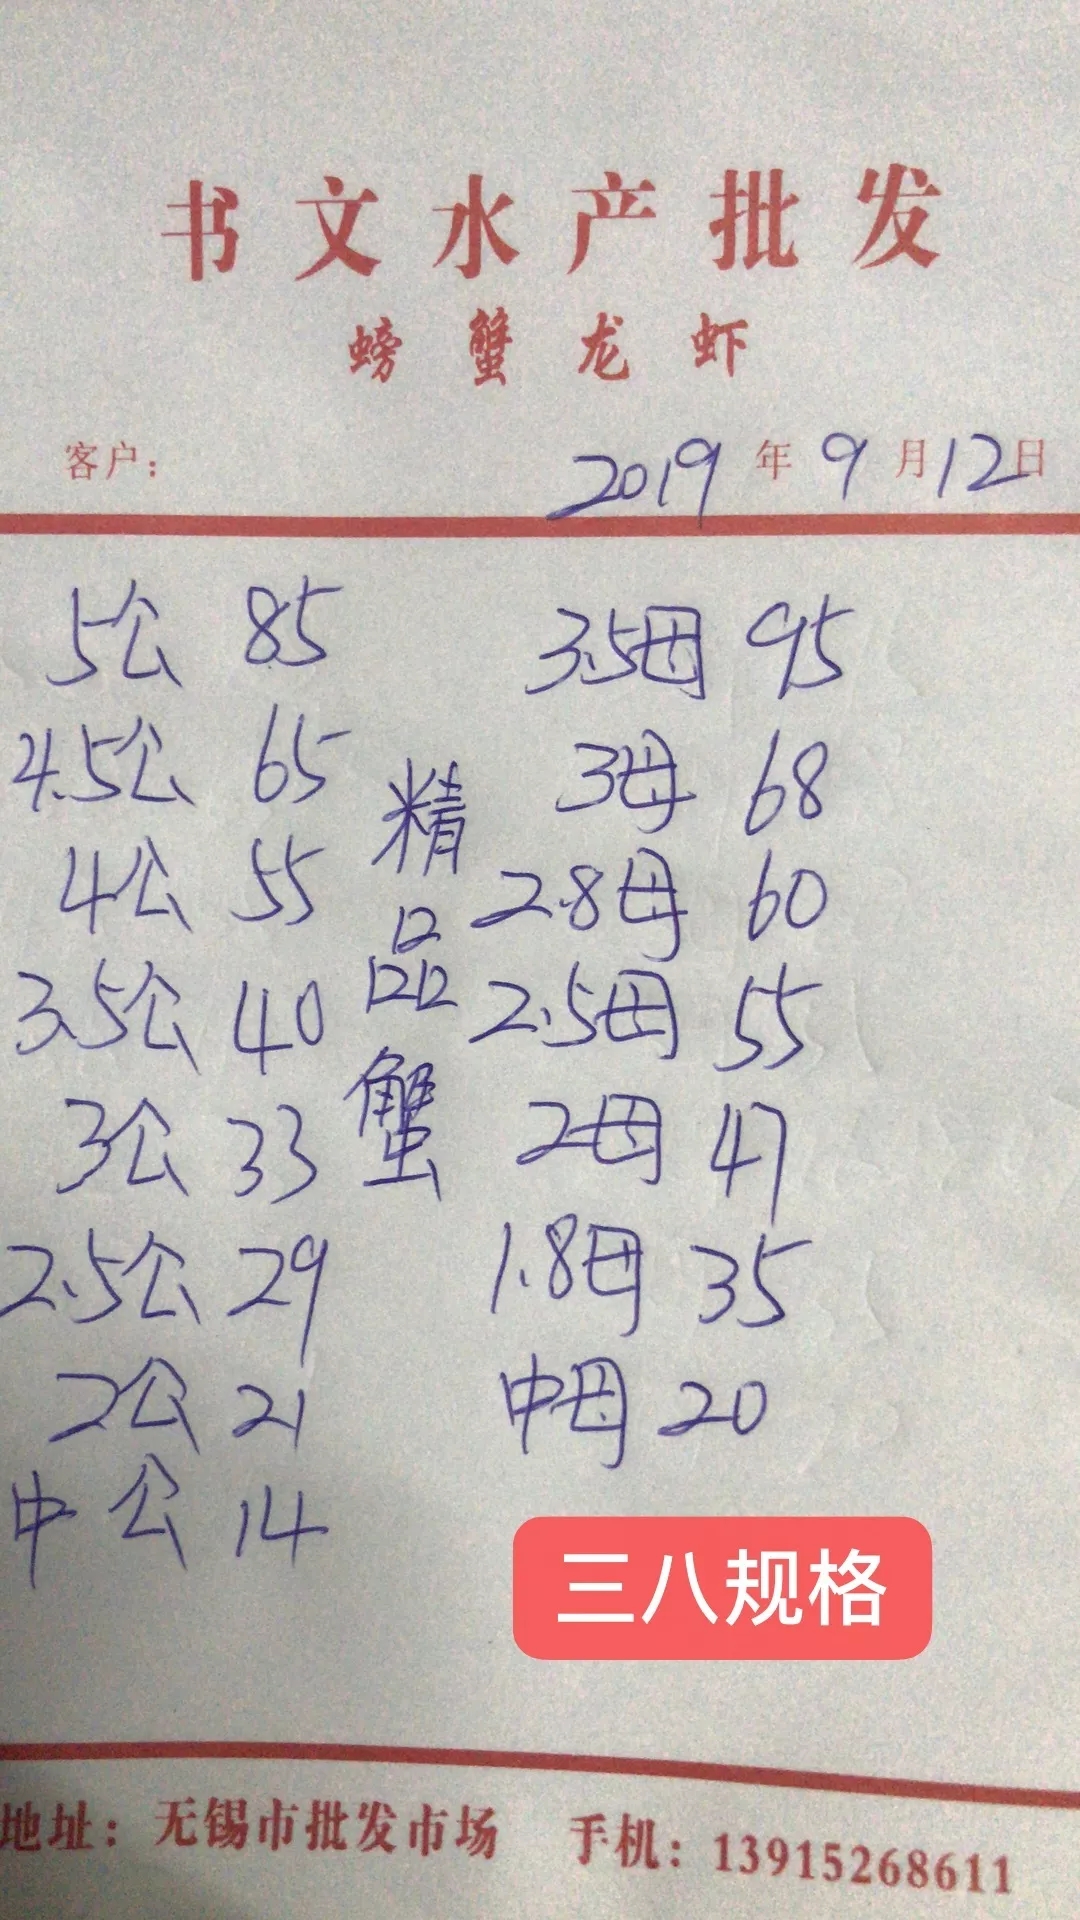 书文水产批发
螃蟹龙虾
客户： 2019年9月12日
5公 85
4.5公 65
4公 55
3.5公 40
3公 33
2.5公 29
2公 21
中公 14
精品蟹
3.5母 95
3母 68
2.8母 60
2.5母 55
2母 47
1.8母 35
中母 20
三八规格
地址：无锡市批发市场 手机：13915268611